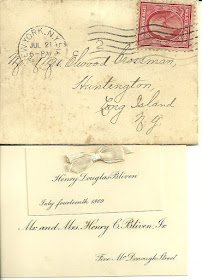 NEW YORK, N.Y.
JUL 21
6-PM
2
Elwood
Huntington,
Long Island
N.Y.
Henry Douglas Bliven
July fourteenth 1909
Mr. and Mrs. Henry C. Bliven, Jr.
Five McDonough Street